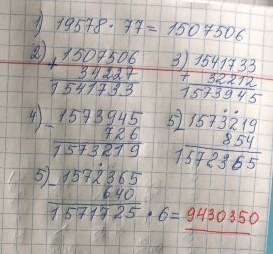 1) 19578 · 77 = 1507506
2) + 1507506
34227
1541733
3) 1541733
+ 32212
1573945
4) - 1573945
726
1573219
5) - 1573219
854
1572365
5) - 1572365
640
1571725 · 6 = 9430350